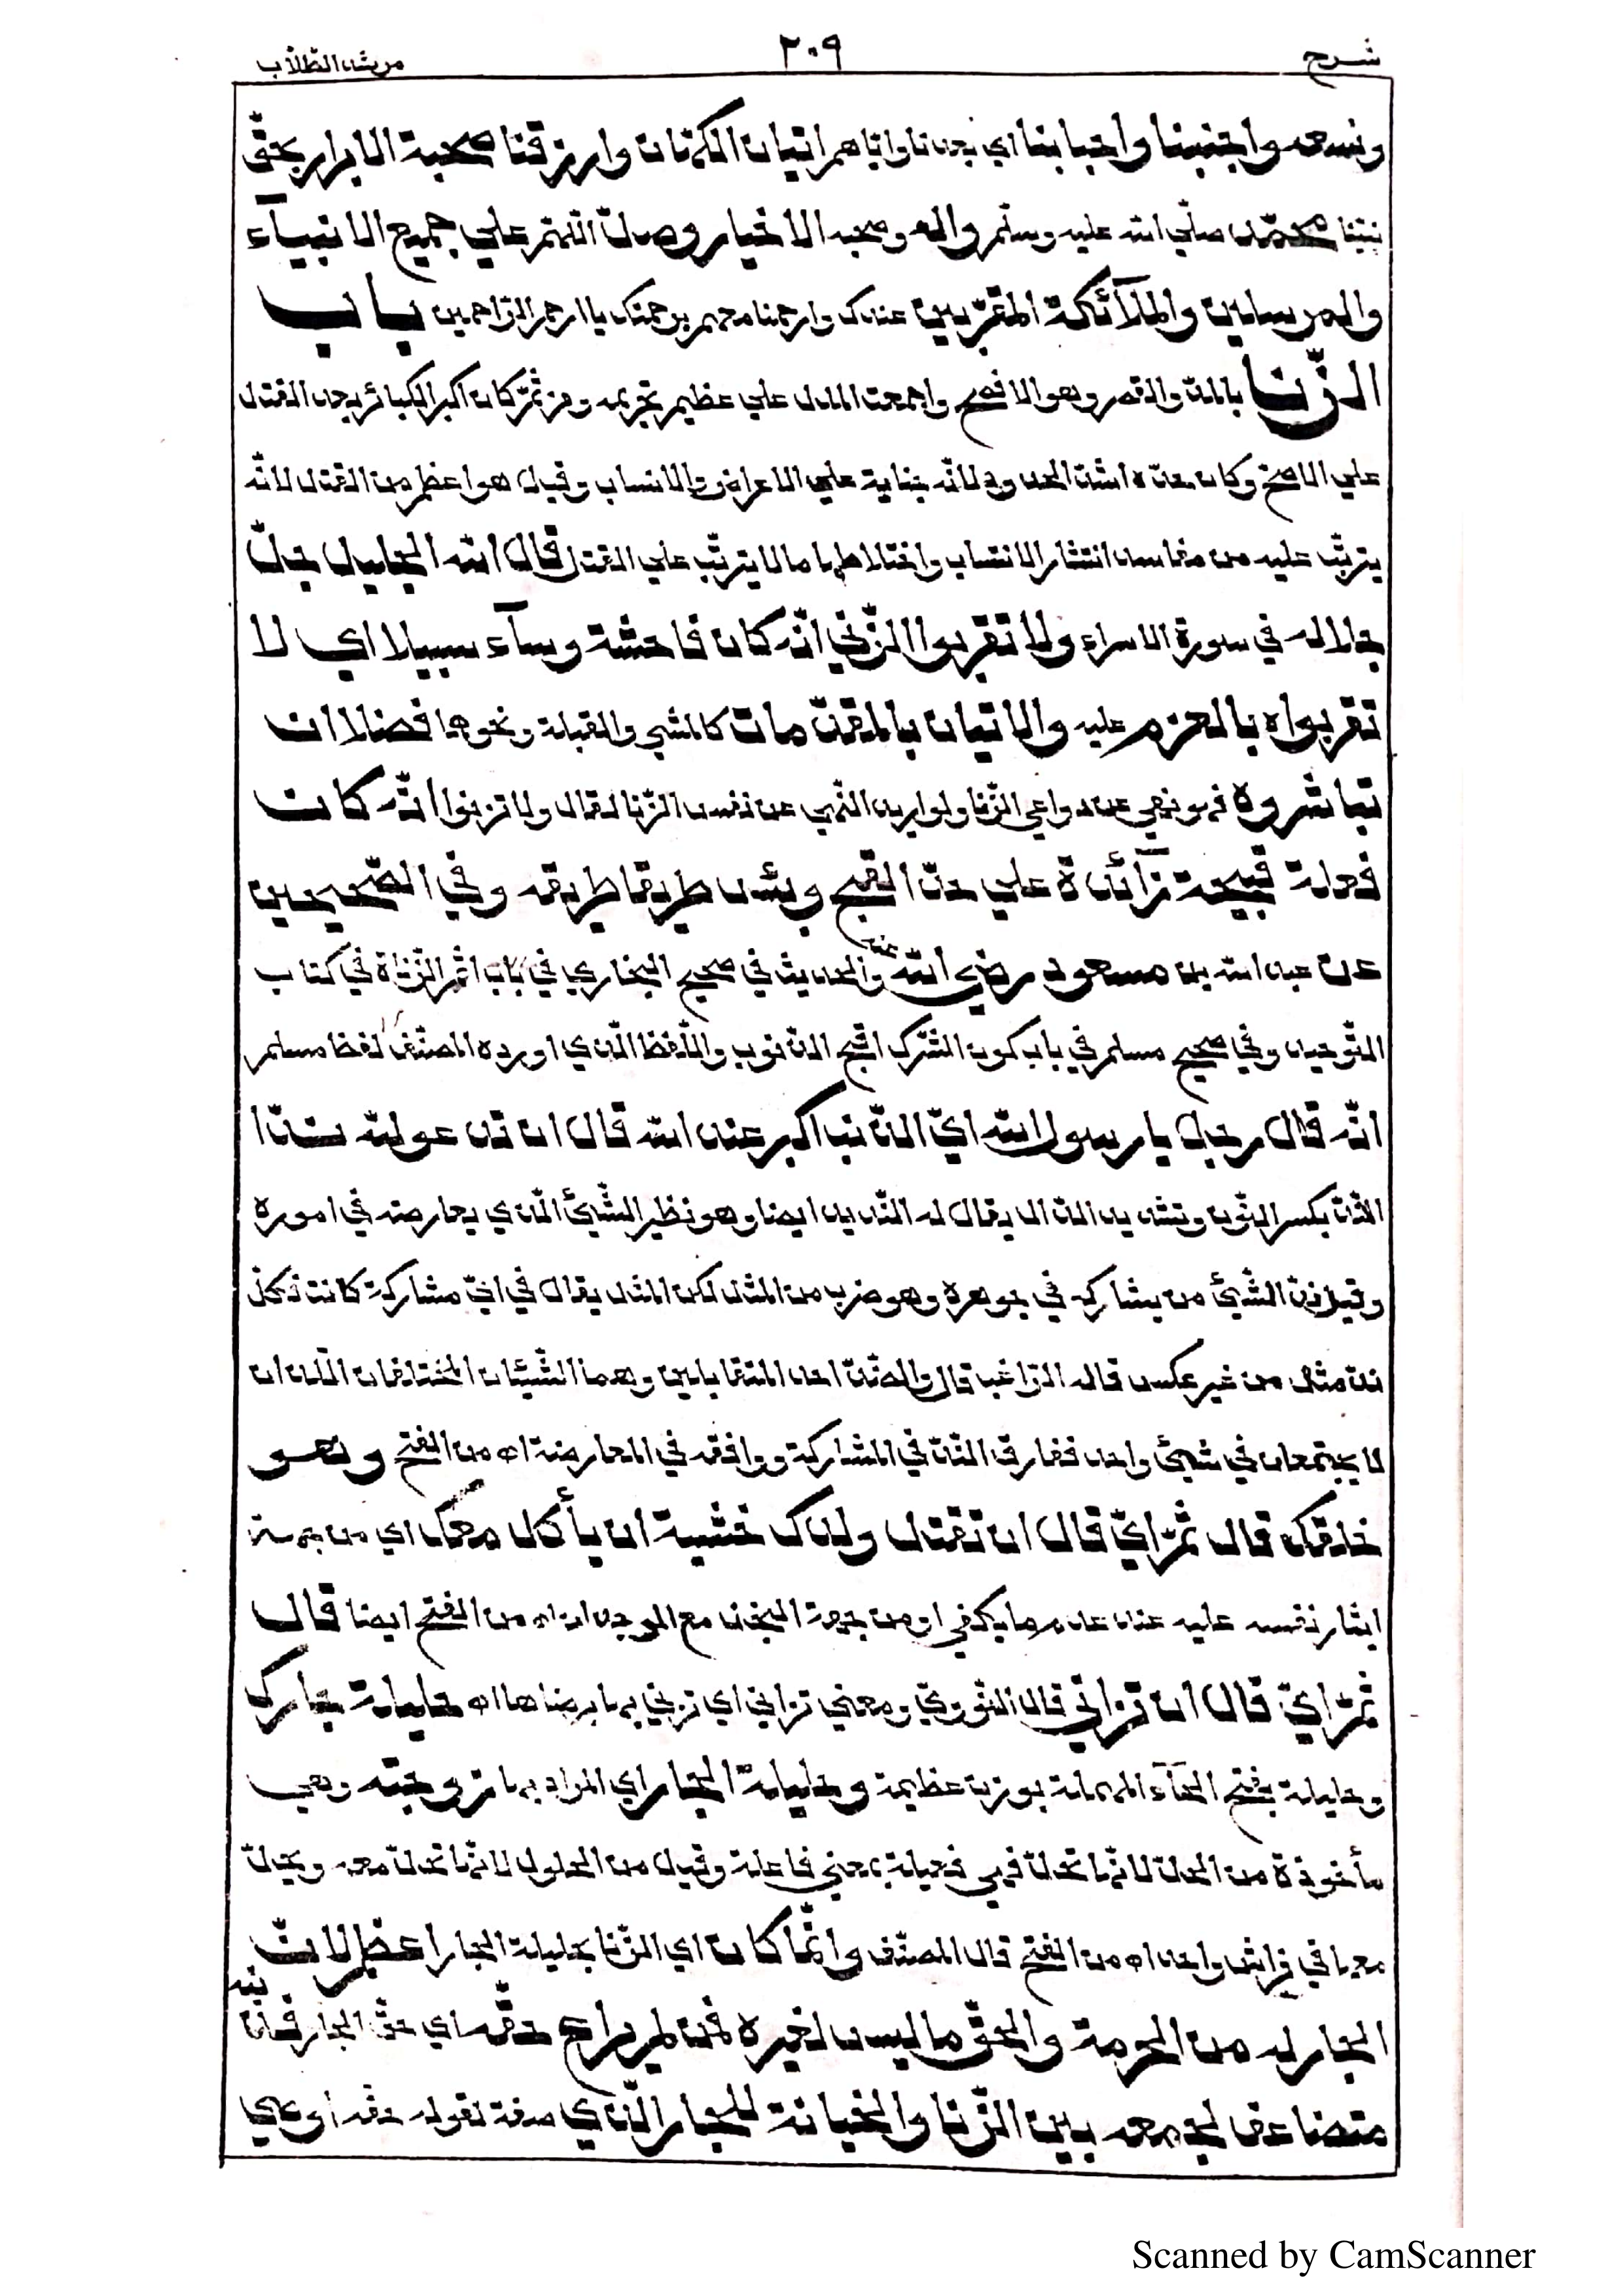 شرح ٢٠٩ مرشد الطلاب
وسعه واجنبنا واحبابنا اي بعدنا واياهم اتيان الكتمان وارزقنا صحبة الابرار بحق
نبينا محمد صلي الله عليه وسلم واله وصحبه الاخيار وصل اللهم علي جميع الانبيآء
والمرسلين والملآئكة المقربين عندك وارحمنا معهم برحمتك يا ارحم الراحمين باب
الزنا بالمد والقصر وهو الافصح واجمعت الملل علي عظيم تحريمه ومن ثم كان اكبر الكبائر بعد القتل
علي الاصح وكان حده اشد الحدود لانه جناية علي الاعراض والانساب وقيل هو اعظم من القتل لانه
يترتب عليه من مفاسد انتشار الانساب واختلاطها ما لا يترتب علي القتل قال الله الجليل جل
جلاله في سورة الاسراء ولا تقربوا الزني انه كان فاحشة وسآء سبيلا اي لا
تقربواه بالعزم عليه والاتيان بالمقدمات كالمشي والقبلة ونحوها فضلا ان
تباشروه فهو نهي عن دواعي الزنا ولو اريد النهي عن نفس الزنا لقال ولا تزنوا انه كان
فعلة قبيحة زآئدة علي حد القبح وبئس طريقا طريقه وفي الصحيحين
عن عبد الله بن مسعود رضي الله عنه والحديث في صحيح البخاري في باب اثم الزناة في كتاب
التوحيد وفي صحيح مسلم في باب كون الشرك اقبح الذنوب واللفظ الذي اورده المصنف لفظ مسلم
انه قال رجل يا رسول الله اي الذنب اكبر عند الله قال ان تدعو لله ندا
الند بكسر النون وتشديد الدال يقال له النديد ايضا وهو نظير الشيئ الذي يعارضه في اموره
وقيل ند الشيئ من يشاركه في جوهره وهو ضرب من المثل لكن المثل يقال في اي مشاركة كانت فكل
ند مثل من غير عكس قاله الراغب قال والضد احد المتقابلين وهما الشيئان المختلفان اللذان
لا يجتمعان في شيئ واحد ففارق الند في المشاركة ووافقه في المعارضة اه من الفتح وهو
خلقك قال ثم اي قال ان تقتل ولدك خشية ان يأكل معك اي من جهة
ايثار نفسه عليه عند عدم ما يكفي او من جهة البخل مع الوجدان اه من الفتح ايضا قال
ثم اي قال ان تزاني قال النووي ومعني تزاني اي تزني بها برضاها اه حليلة جارك
وحليلة بفتح الحآء المهملة بوزن عظيمة وحليلة الجار اي المراد بها زوجته وهي
مأخوذة من الحل لانها تحل فهي فعيلة بمعني فاعلة وقيل من الحلول لانها تحل معه ويحل
معها في فراش واحد اه من الفتح قال المصنف وانما كان اي الزنا بحليلة الجار اعظم لان
الجار له من الحرمة والحق ما ليس لغيره فمن لم يراع حقه اي حق الجار فذنبه
متضاعف لجمعه بين الزنا والخيانة للجار الذي صفة لقوله حقه اوصي
Scanned by CamScanner